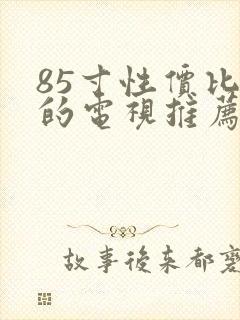 85寸性價比
的電視推薦
故事後來都